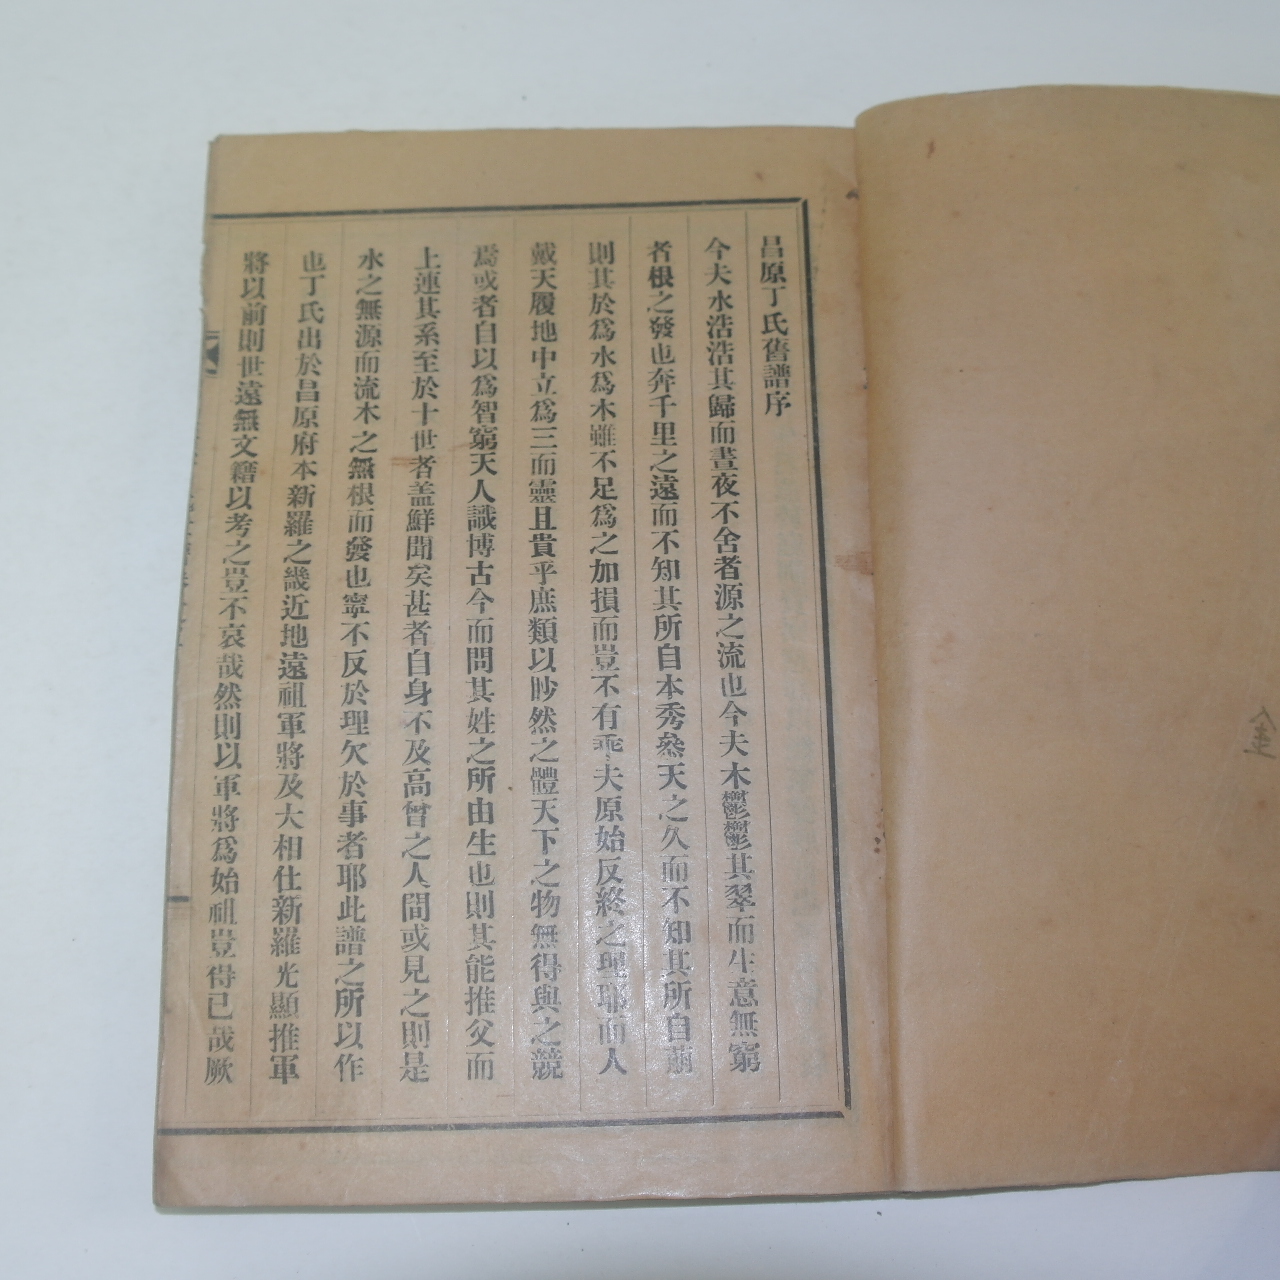 昌原丁氏舊譜序
今夫水浩浩其歸而晝夜不舍者源之流也今夫木鬱鬱其翠而生意無窮
者根之發也奔千里之遠而不知其所自本秀叅天之久而不知其所自萠
則其於爲水爲木雖不足爲之加損而豈不有乖夫原始反終之理耶而人
戴天履地中立爲三而靈且貴乎庶類以眇然之體天下之物無得與之競
焉或者自以爲智窮天人識博古今而問其姓之所由生也則其能推父而
上連其系至於十世者盖鮮聞矣甚者自身不及高曾之人間或見之則是
水之無源而流木之無根而發也寧不反於理欠於事者耶此譜之所以作
也丁氏出於昌原府本新羅之畿近地遠祖軍將及大相仕新羅光顯推軍
將以前則世遠無文籍以考之豈不哀哉然則以軍將爲始祖豈得已哉厥